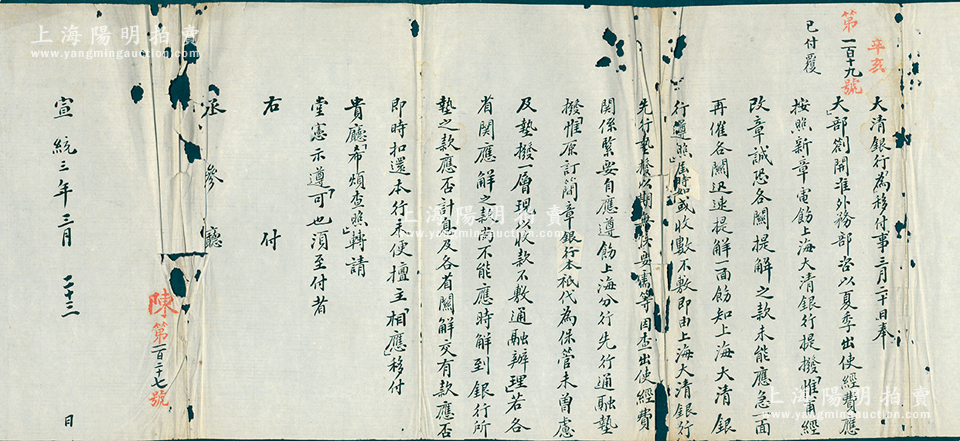 辛亥
第一百十九號
已付覆
大清銀行為移付事三月二十日奉
大部劄開准外務部咨以夏季出使經費應
按照新章電飭上海大清銀行提撥惟甫經
改章誠恐各關提解之款未能應急一面
再催各關迅速提解一面飭知上海大清銀
行遵照屆時如或收數不敷即由上海大清銀行
先行墊發以期無誤要需等因查出使經費
關係緊要自應遵飭上海分行先行通融墊
撥惟原訂簡章銀行本祇代為保管未曾慮
及墊撥一層現以收款不敷通融辦理若各
省關應解之款尚不能應時解到銀行所
墊之款應否計息及各省關解交有款應否
即時扣還本行未便擅主相應移付
貴廳希煩查照轉請
堂憲示遵可也須至付者
右付
丞參廳
陳第一百二十七號
宣統三年三月二十三日
上海陽明拍賣
www.yangmingauction.com
上海陽明拍賣
www.yangmingauction.com
上海陽明拍賣
www.yangmingauction.com
上海陽明拍賣
www.yangmingauction.com